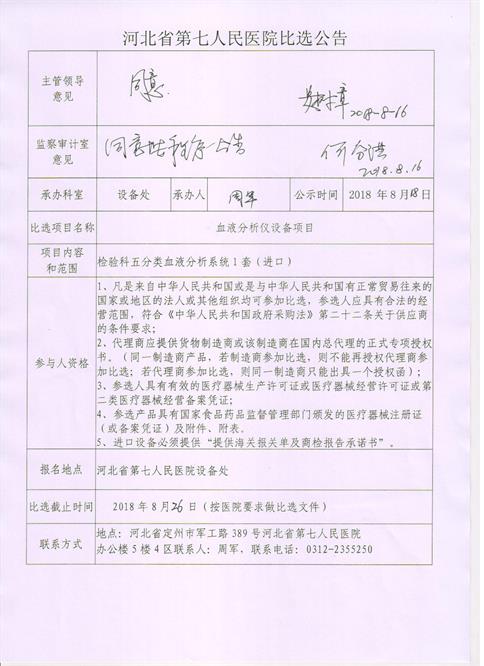 河北省第七人民医院比选公告
主管领导
意见
同意
2018-8-16
监察审计室
意见
同意按程序公告
2018.8.16
承办科室
设备处
承办人
周军
公示时间
2018 年 8 月 18 日
比选项目名称
血液分析仪设备项目
项目内容
和范围
检验科五分类血液分析系统 1 套（进口）
参与人资格
1、凡是来自中华人民共和国或是与中华人民共和国有正常贸易往来的
国家或地区的法人或其他组织均可参加比选，参选人应具有合法的经
营范围，符合《中华人民共和国政府采购法》第二十二条关于供应商
的条件要求；
2、代理商应提供货物制造商或该制造商在国内总代理的正式专项授权
书。（同一制造商产品，若制造商参加比选，则不能再授权代理商参
加比选；若代理商参加比选，则同一制造商只能出具一个授权函）；
3、参选人具有有效的医疗器械生产许可证或医疗器械经营许可证或第
二类医疗器械经营备案凭证；
4、参选产品具有国家食品药品监督管理部门颁发的医疗器械注册证
（或备案凭证）及附件、附表。
5、进口设备必须提供“提供海关报关单及商检报告承诺书”。
报名地点
河北省第七人民医院设备处
比选截止时间
2018 年 8 月 26 日（按医院要求做比选文件）
联系方式
地点：河北省定州市军工路 389 号河北省第七人民医院
办公楼 5 楼 4 区联系人：周军，联系电话：0312-2355250